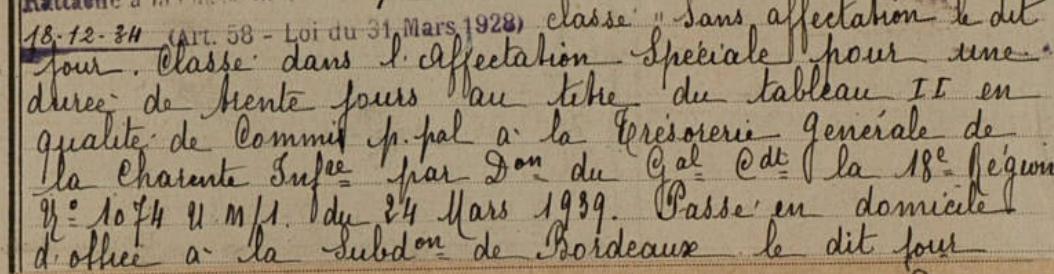 Rattaché à la
18-12-34 (Art. 58 - Loi du 31 Mars 1928) classé "sans affectation le dit
jour. Classé dans l'affectation Spéciale pour une
durée de trente jours au titre du tableau II en
qualité de Commis p.pal à la Trésorerie Générale de
la Charente Infre par Don du Gal Cdt la 18e Région
No 1074 U M/1. du 24 Mars 1939. Passé en domicile
d'office à la Subdon de Bordeaux le dit jour